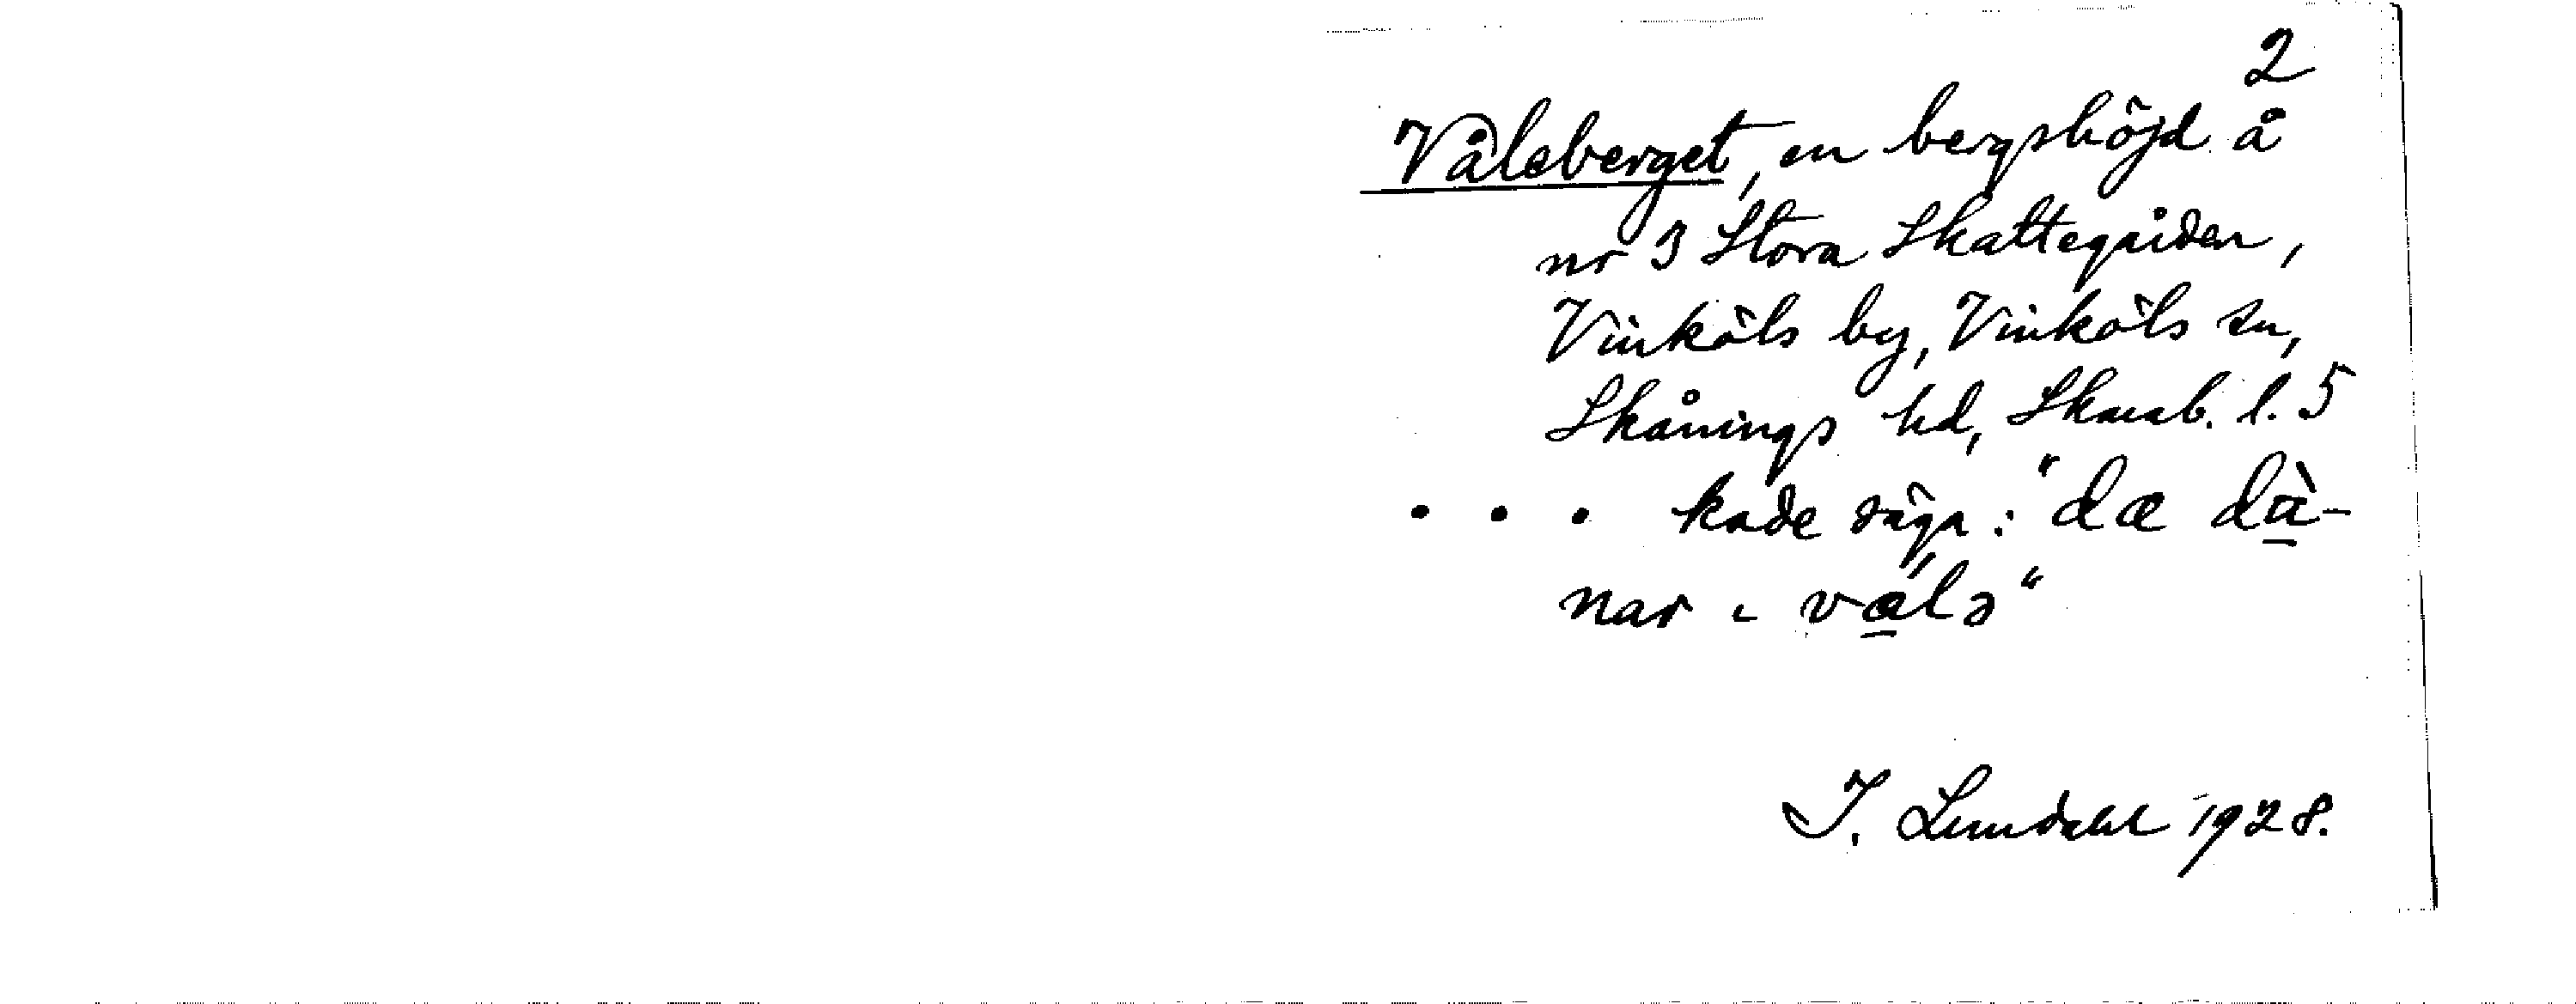 2
Våleberget, en bergshöjd å
nr 3 Stora Skattegården,
Vinköls by, Vinköls sn,
Skånings hd, Skarab. l. 5
. . . kade säga: "dæ dà-
nar ɩ válə"
I. Lundahl 1928.